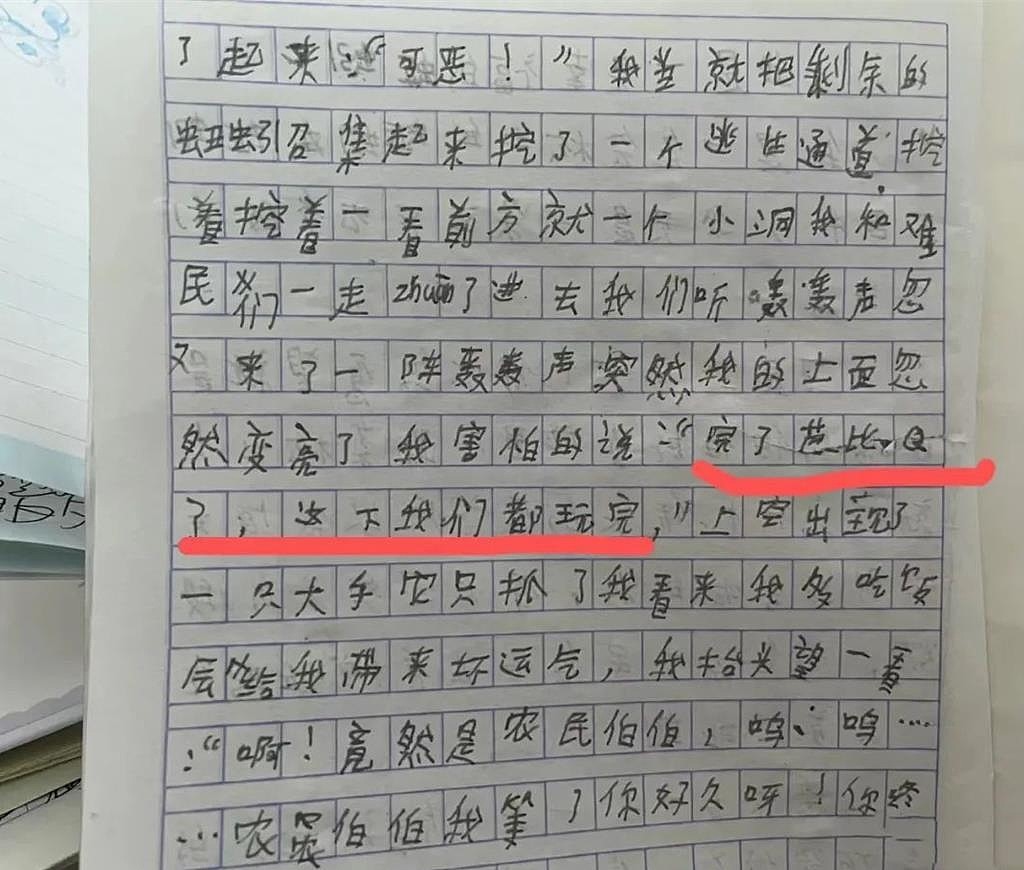 了起来：“可恶！”我当就把剩余的
蚯蚓召集起来挖了一个逃生通道挖
着挖着一看前方就一个小洞我和难
民们一走zhuan了进去我们听轰轰声忽
又来了一阵轰轰声突然我的上面忽
然变亮了我害怕的说：“完了芭比Q
了，这下我们都玩完，”上空出现了
一只大手它只抓了我看来我多吃饭
会给我带来坏运气，我抬头望一看
：“啊！竟然是农民伯伯，呜、呜…
…农民伯伯我等了你好久呀！你终